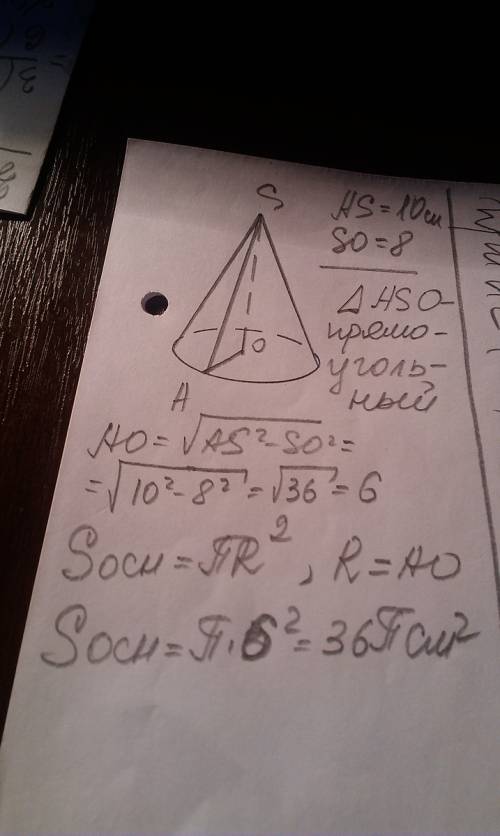 S
AS = 10 см
SO = 8
△ASO-
прямо-
уголь-
ный
O
A
AO = √AS²-SO² =
= √10²-8² = √36 = 6
Sосн = πR², R = AO
Sосн = π·6² = 36π см²